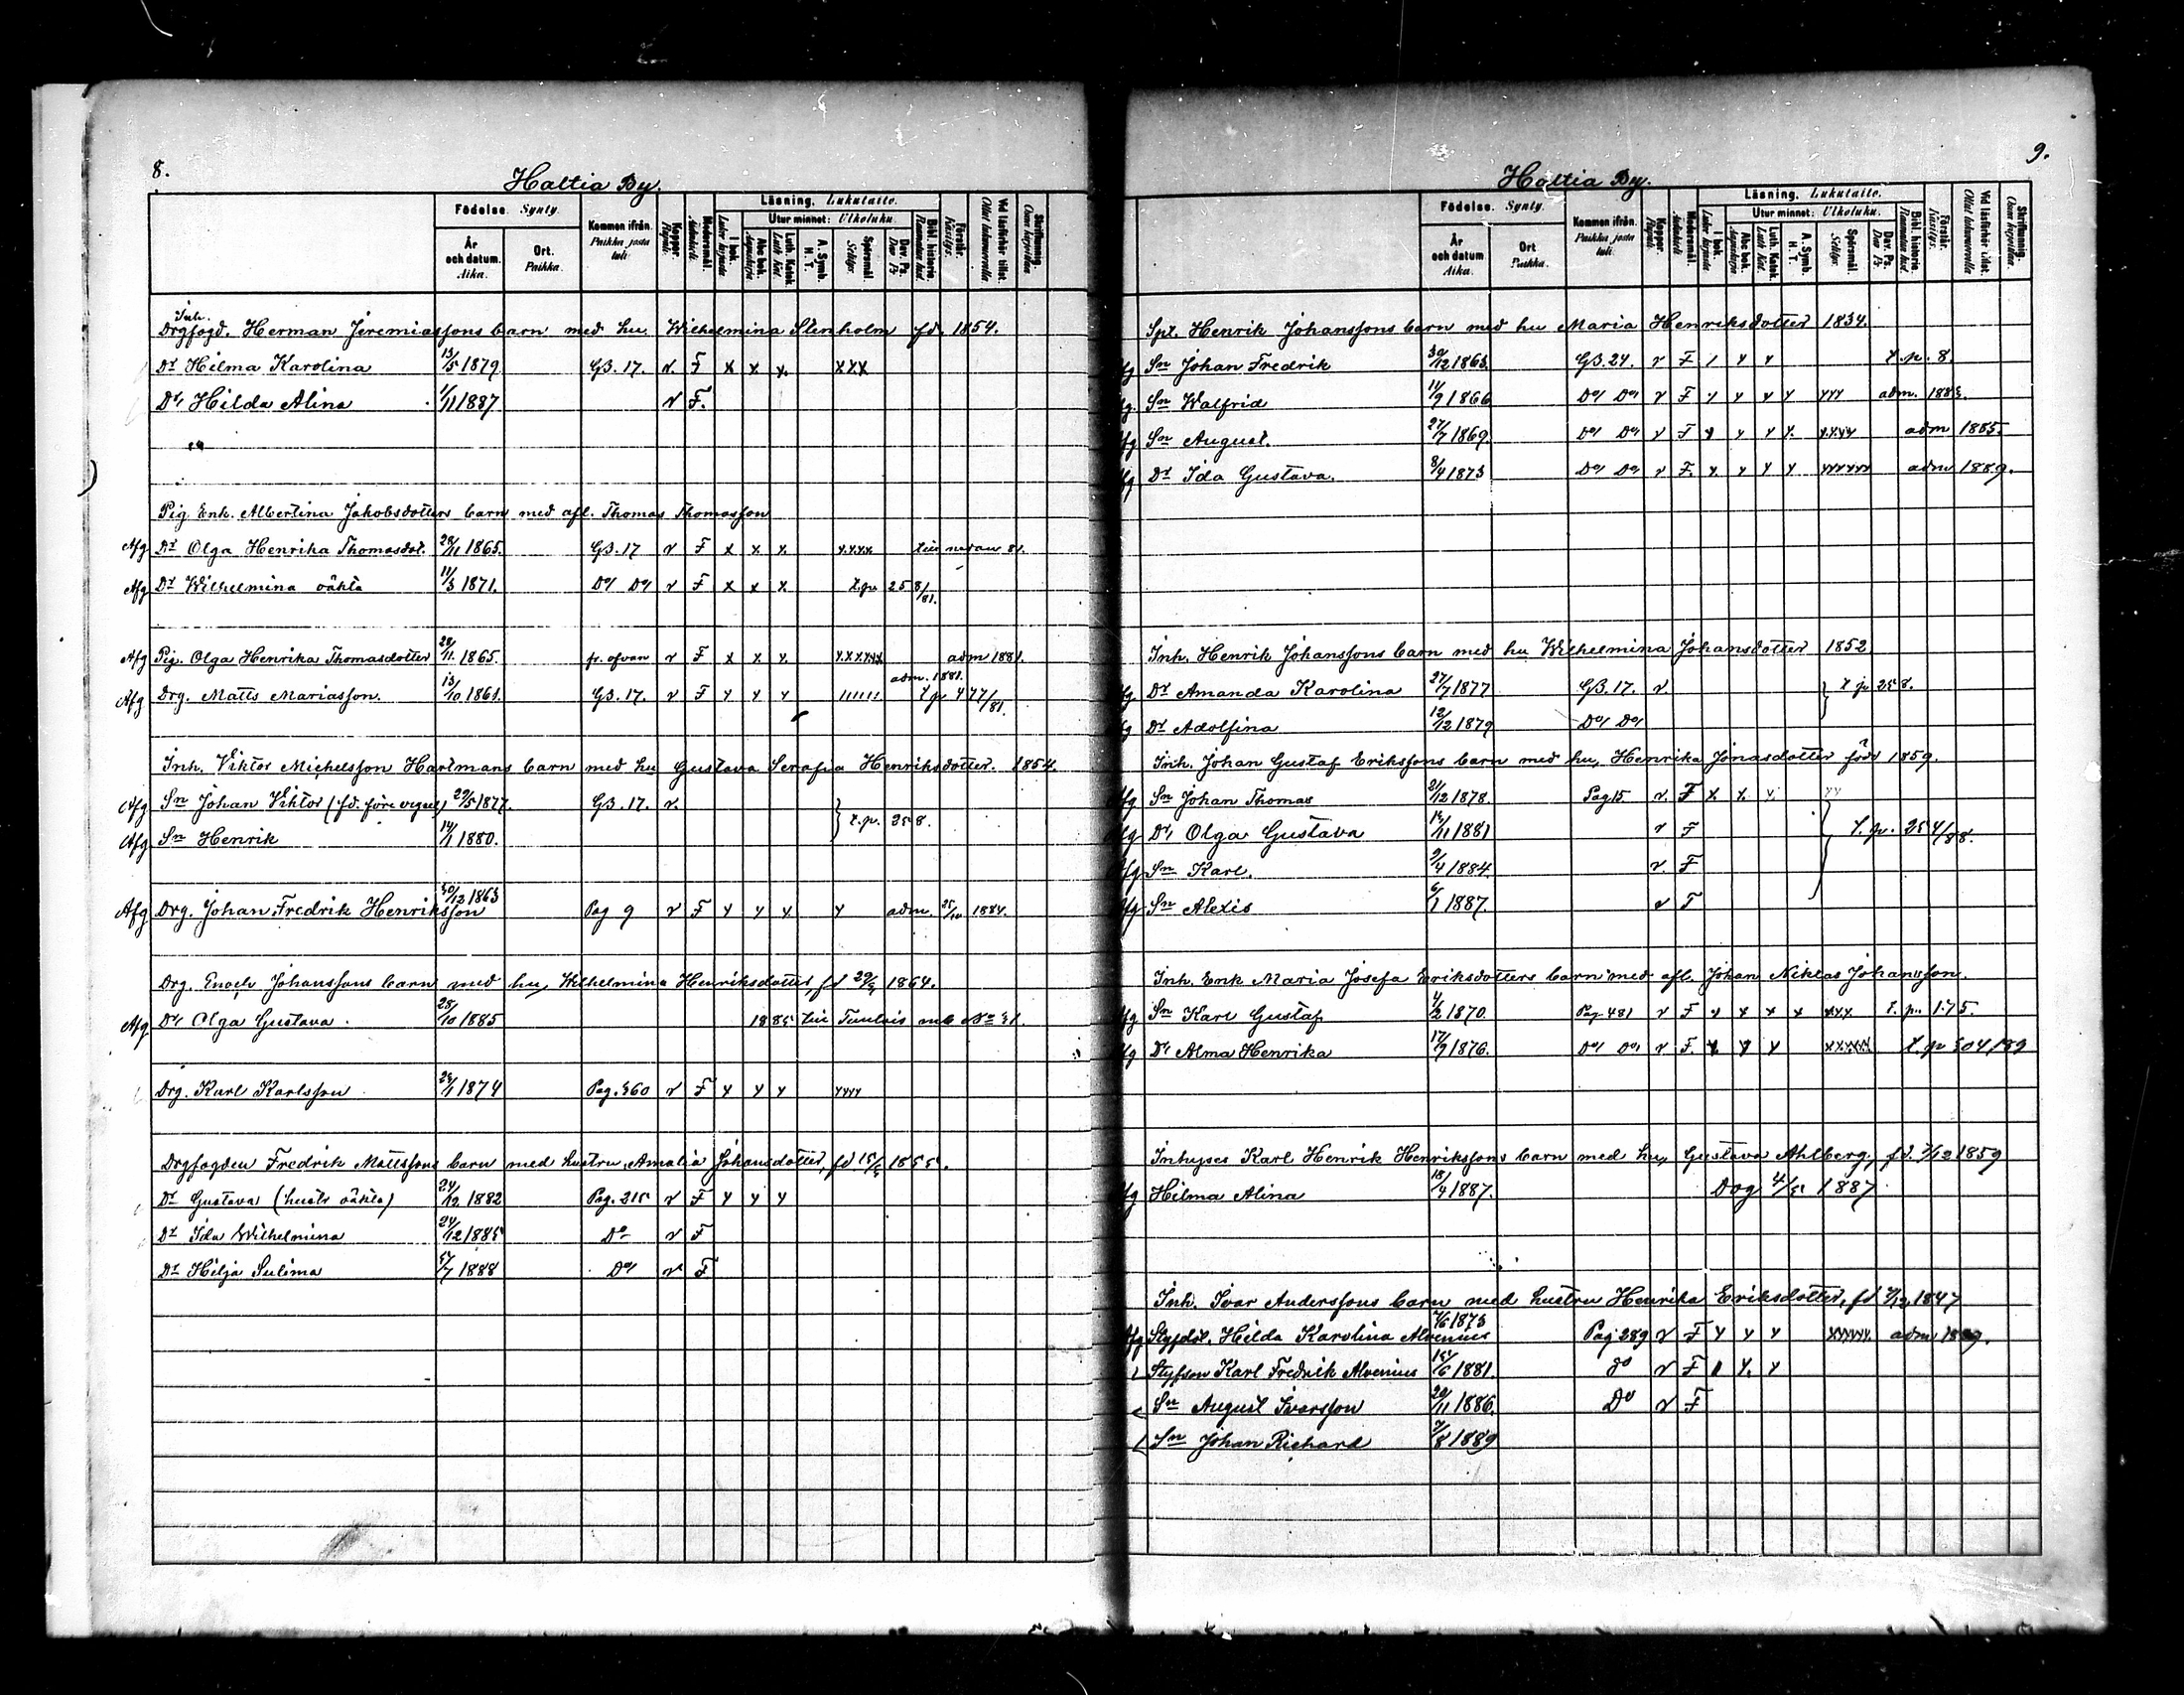 8.
Haltia By.
Födelse. Synty.
År och datum. Aika.
Ort. Paikka.
Kommen ifrån. Paikka josta tuli.
Koppor. Rupuli.
Modersmål. Äidinkieli.
Läsning. Lukutaito.
I bok.
Utur minnet: Ulkoluku.
Abc bok.
Luth. Katek.
A. Symb. H. T.
Spörsmål. Selitys.
Dav. Ps.
Bibl. historia.
Förstår. Käsitys.
Vid läsförhör tillst.
Skriftkunnig.
Inh.
Drgfogd. Herman Jeremiassons barn med hu Wilhelmina Stenholm fd. 1854.
Dr Hilma Karolina 13/5 1879 GB. 17. v. F x x x. xxx
Dr Hilda Alina 1/11 1887 v F.
Pig. Enk. Albertina Jakobsdotters barn med afl. Thomas Thomasson
Afg Dr Olga Henrika Thomasdot. 28/11 1865. GB. 17 v F x x x. x.x.x.x. nedan 81.
Afg Dr Wilhelmina oäkta 11/3 1871. Do Do v F x x x. t.p. 258/81.
Afg Pig. Olga Henrika Thomasdotter 28/11 1865. fr. ofvan v F x x x. x.x.x.x.x.x adm 1881.
Afg Drg. Matts Mariasson. 13/10 1861. GB. 17. v F x x x 111111 adm. 1881. t p 477/81.
Inh. Viktor Michelsson Hartmans barn med hu Gustava Serafia Henriksdotter. 1854.
Afg Sn Johan Viktor (fd. före vigsel) 29/5 1877. GB. 17. v. } t.p. 258.
Afg Sn Henrik 14/1 1880.
Afg Drg. Johan Fredrik Henriksson 30/12 1863 Pag 9 v F x x x x adm. 25/10 1884.
Drg. Enoch Johanssons barn med hu, Wilhelmina Henriksdotter, fd 29/9 1864.
Afg. Dr Olga Gustava. 28/10 1885 1885 till Tenala mb No 31.
Drg. Karl Karlsson 28/1 1874 Pag. 360 v F x x x xxxx
Drgfogden Fredrik Mattssons barn med hustru Amalia Johansdotter, fd 15/5 1855.
Dr Gustava (hustr oäkta) 24/12 1882 Pag. 215 v F x x x
Dr Ida Wilhelmina 24/12 1885 Do v F
Dr Hilja Sulima 5/7 1888 Do v F
9.
Haltia By.
Födelse. Synty.
År och datum Aika.
Ort Paikka.
Kommen ifrån. Paikka josta tuli.
Koppor. Rupuli.
Modersmål. Äidinkieli.
Läsning. Lukutaito.
I bok.
Utur minnet: Ulkoluku.
Abc bok.
Luth. Katek.
A. Symb. H. T.
Spörsmål. Selitys.
Dav. Ps.
Bibl. historia.
Förstår. Käsitys.
Vid läsförhör tillst.
Skriftkunnig.
Spt. Henrik Johanssons barn med hu Maria Henriksdotter 1834.
Afg Sn Johan Fredrik 30/12 1863. GB. 24. v F 1 x x t.p. 8.
Afg. Sn Walfrid 11/9 1866 Do Do v F x x x x xxx adm. 1883.
Afg Sn August. 27/7 1869. Do Do v F x x x x. x.x.x.x adm 1885.
Afg Dr Ida Gustava. 8/4 1873 Do Do v F. x. x x x xxxxxx adm 1889.
Inh. Henrik Johanssons barn med hu Wilhelmina Johansdotter 1852
Afg. Dr Amanda Karolina 27/7 1877 GB. 17. v. } t p 258.
Afg Dr Adolfina 12/12 1879 Do Do
Inh. Johan Gustaf Erikssons barn med hu, Henrika Jonasdotter född 1859.
Afg Sn Johan Thomas 21/12 1878. Pag 15 v. F x x. x. xx
Afg Dr Olga Gustava 14/11 1881 v F } t.p. 254/88.
Afg Sn Karl. 9/4 1884. v. F
Afg Sn Alexis 6/1 1887. v F
Inh. Enk Maria Josefa Eriksdotters barn med afl. Johan Niklas Johansson.
Afg Sn Karl Gustaf 4/2 1870. Pag 481 v F x x x x xxx t. p. 175.
Afg Dr Alma Henrika 17/9 1876. Do Do v F. x x x xxxxx t. p 304/89
Inhyses Karl Henrik Henrikssons barn med hu, Gustava Ahlberg, fd. 3/12 1859
Afg Hilma Alina 18/4 1887. Dog 4/5 1887
Inh. Ivar Anderssons barn med hustru Henrika Eriksdotter, fd 7/12 1847
Afg Styfdot. Hilda Karolina Alvenius 7/6 1873 Pag 289 v F x x x xxxxx. adm 1889.
Styfson Karl Fredrik Alvenius 15/6 1881. do v F 1 x. x
Sn August Ivarsson 20/11 1886. Do v F
Sn Johan Richard 7/8 1889